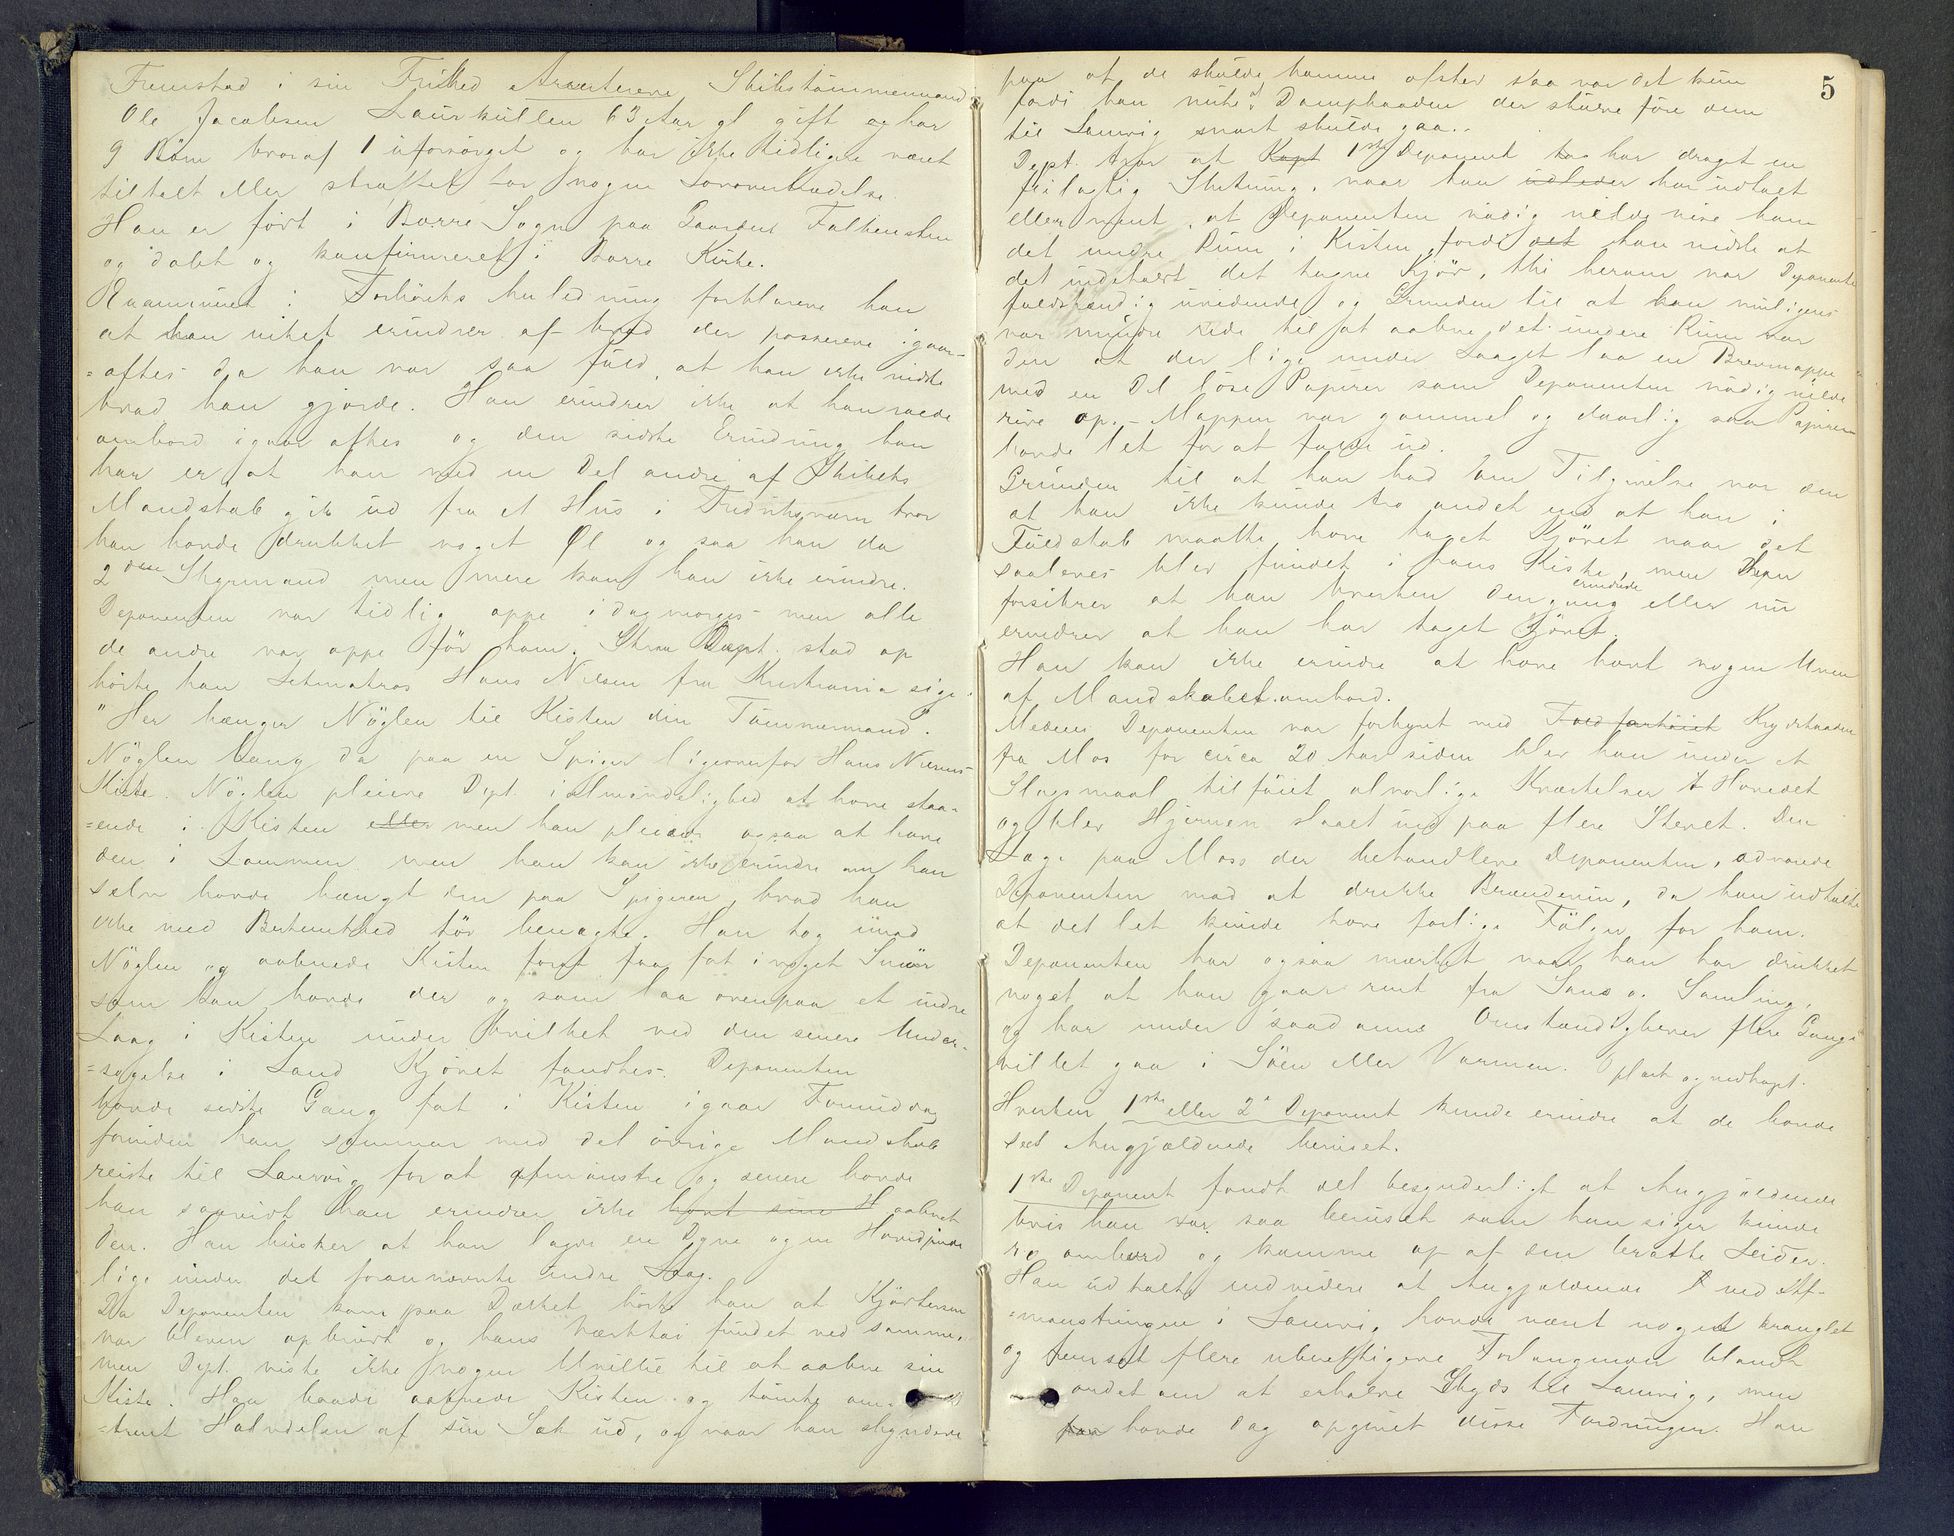 Fremstod i sin Frihed Arresterede Skibstømmermand
Ole Jacobsen Laurkullen 63 Aar gl gift og har
9 Børn hvoraf 1 uforsørget og har ikke tidligere været
tiltalt eller straffet for nogen Lovovertrædelse.
Han er født i Borre Sogn paa Gaarden Falkensten
og døbt og konfirmeret i Borre Kirke.
Examineret i Forhørets Anledning forklarede han
at han intet erindrer af hvad der passerede igaar-
=aftes da han var saa fuld, at han ikke vidste
hvad han gjorde. Han erindrer ikke at han roede
ombord igaar aftes og den sidste Erindring han
har er at han med en Del andre af Skibets
Mandskab gik ud fra et Hus i Fredriksværn hvor
han havde drukket noget Øl og saa han da
2den Styrmand men mere kan han ikke erindre.
Deponenten var tidlig oppe idag morges - men alle
de andre var oppe før ham. Strax Dept. stod op
hørte han Letmatros Hans Nilsen fra Kristiania sige:
"Her hænger Nøglen til Kisten din Tømmermand".
Nøglen hang da paa en Spiger ligeoverfor Hans Nilsens
Kiste. Nøglen pleiede Dept. i Almindelighed at have staa-
=ende i Kisten eller men han pleiede ogsaa at have
den i Lommen men han kan ikke erindre om han
selv havde hængt den paa Spigeren, hvad han
ikke med Bestemthed tør benægte. Han tog imod
Nøglen og aabnede Kisten forat faa fat i noget Smør
som han havde der og som laa ovenpaa et indre
Laag i Kisten under hvilket ved den senere Under-
=søgelse i Land Kjødet fandtes. Deponenten
havde sidste Gang fat i Kisten igaar Formiddag
forinden han sammen med det øvrige Mandskab
reiste til Laurvig for at afmønstre og senere havde
han saavidt han erindrer ikke havt sin H aabnet
den. Han husker at han lagde en Dyne og en Hovedpude
lige under det forannævnte indre Laag.
Da Deponenten kom paa Dækket hørte han at Kjødtønden
var bleven opbrudt og hans Værktøi fundet ved samme,
men Dept. viste ikke nogen Uvillie til at aabne sin
Kiste. Han baade aabnede Kisten og tømte om-
=trent Halvdelen af sin Sæk ud, og naar han skyndede
5
paa at de skulde komme afsted saa var det kun
fordi han vidste at Dampbaaden der skulde føre dem
til Laurvig snart skulde gaa.
Dept. tror at Kapt 1ste Deponent har draget en
feilagtig Slutning, naar han udleder har udtalt
eller ment, at Deponenten nødig vilde vise ham
det indre Rum i Kisten, fordi det han vidste at
det indeholdt det tagne Kjød, thi herom var Deponenten
fuldstændig uvidende og Grunden til at han muligens
var mindre rede til at aabne det indre Rum var
den at der lige under Laaget laa en Brevmappe
med en Del løse Papirer som Deponenten nødig vilde
rive op. - Mappen var gammel og daarlig saa Papirerne
havde let for at falde ud.
Grunden til at han bad om Tilgivelse var den
at han ikke kunde tro andet end at han i
Fuldskab maatte have taget Kjødet naar det
saaledes blev fundet i hans Kiste, men Depn
forsikrer at han hverken dengang erindrede eller nu
erindrer at han har taget Kjødet.
Han kan ikke erindre at have havt nogen Uven
af Mandskabet ombord.
Medens Deponenten var forhyret med Toldfartøiet Krydstaaden
fra Mos for circa 20 Aar siden blev han under et
Slagsmaal tilføiet alvorlige Kvæstelser i Hovedet
og blev Hjernen slaaet ind paa flere Steder. Den
Læge paa Moss der behandlede Deponenten, advarede
Deponenten mod at drikke Brændevin, da han udtalte
at det let kunde have farlige Følger for ham.
Deponenten har ogsaa mærket naar han har drukket
noget at han gaar rent fra Sans og Samling,
og har under saadanne Omstændigheder flere Gange
villet gaa i Søen eller Varmen. Oplæst og vedtaget.
Hverken 1ste eller 2d Deponent kunde erindre at de havde
seet Angjældende beruset.
1ste Deponent fandt det besynderligt at Angjældende
hvis han var saa beruset som han siger kunde
ro ombord og komme op af den bratte Leider.
Han udtalte endvidere at Angjældende ved Af-
=mønstringen i Laurvig havde været noget kranglet
og fremsat flere uberettigede Forlangender blandt
andet om at erholde Skyds til Laurvig, men
han havde dog opgivet disse Fordringer. Han